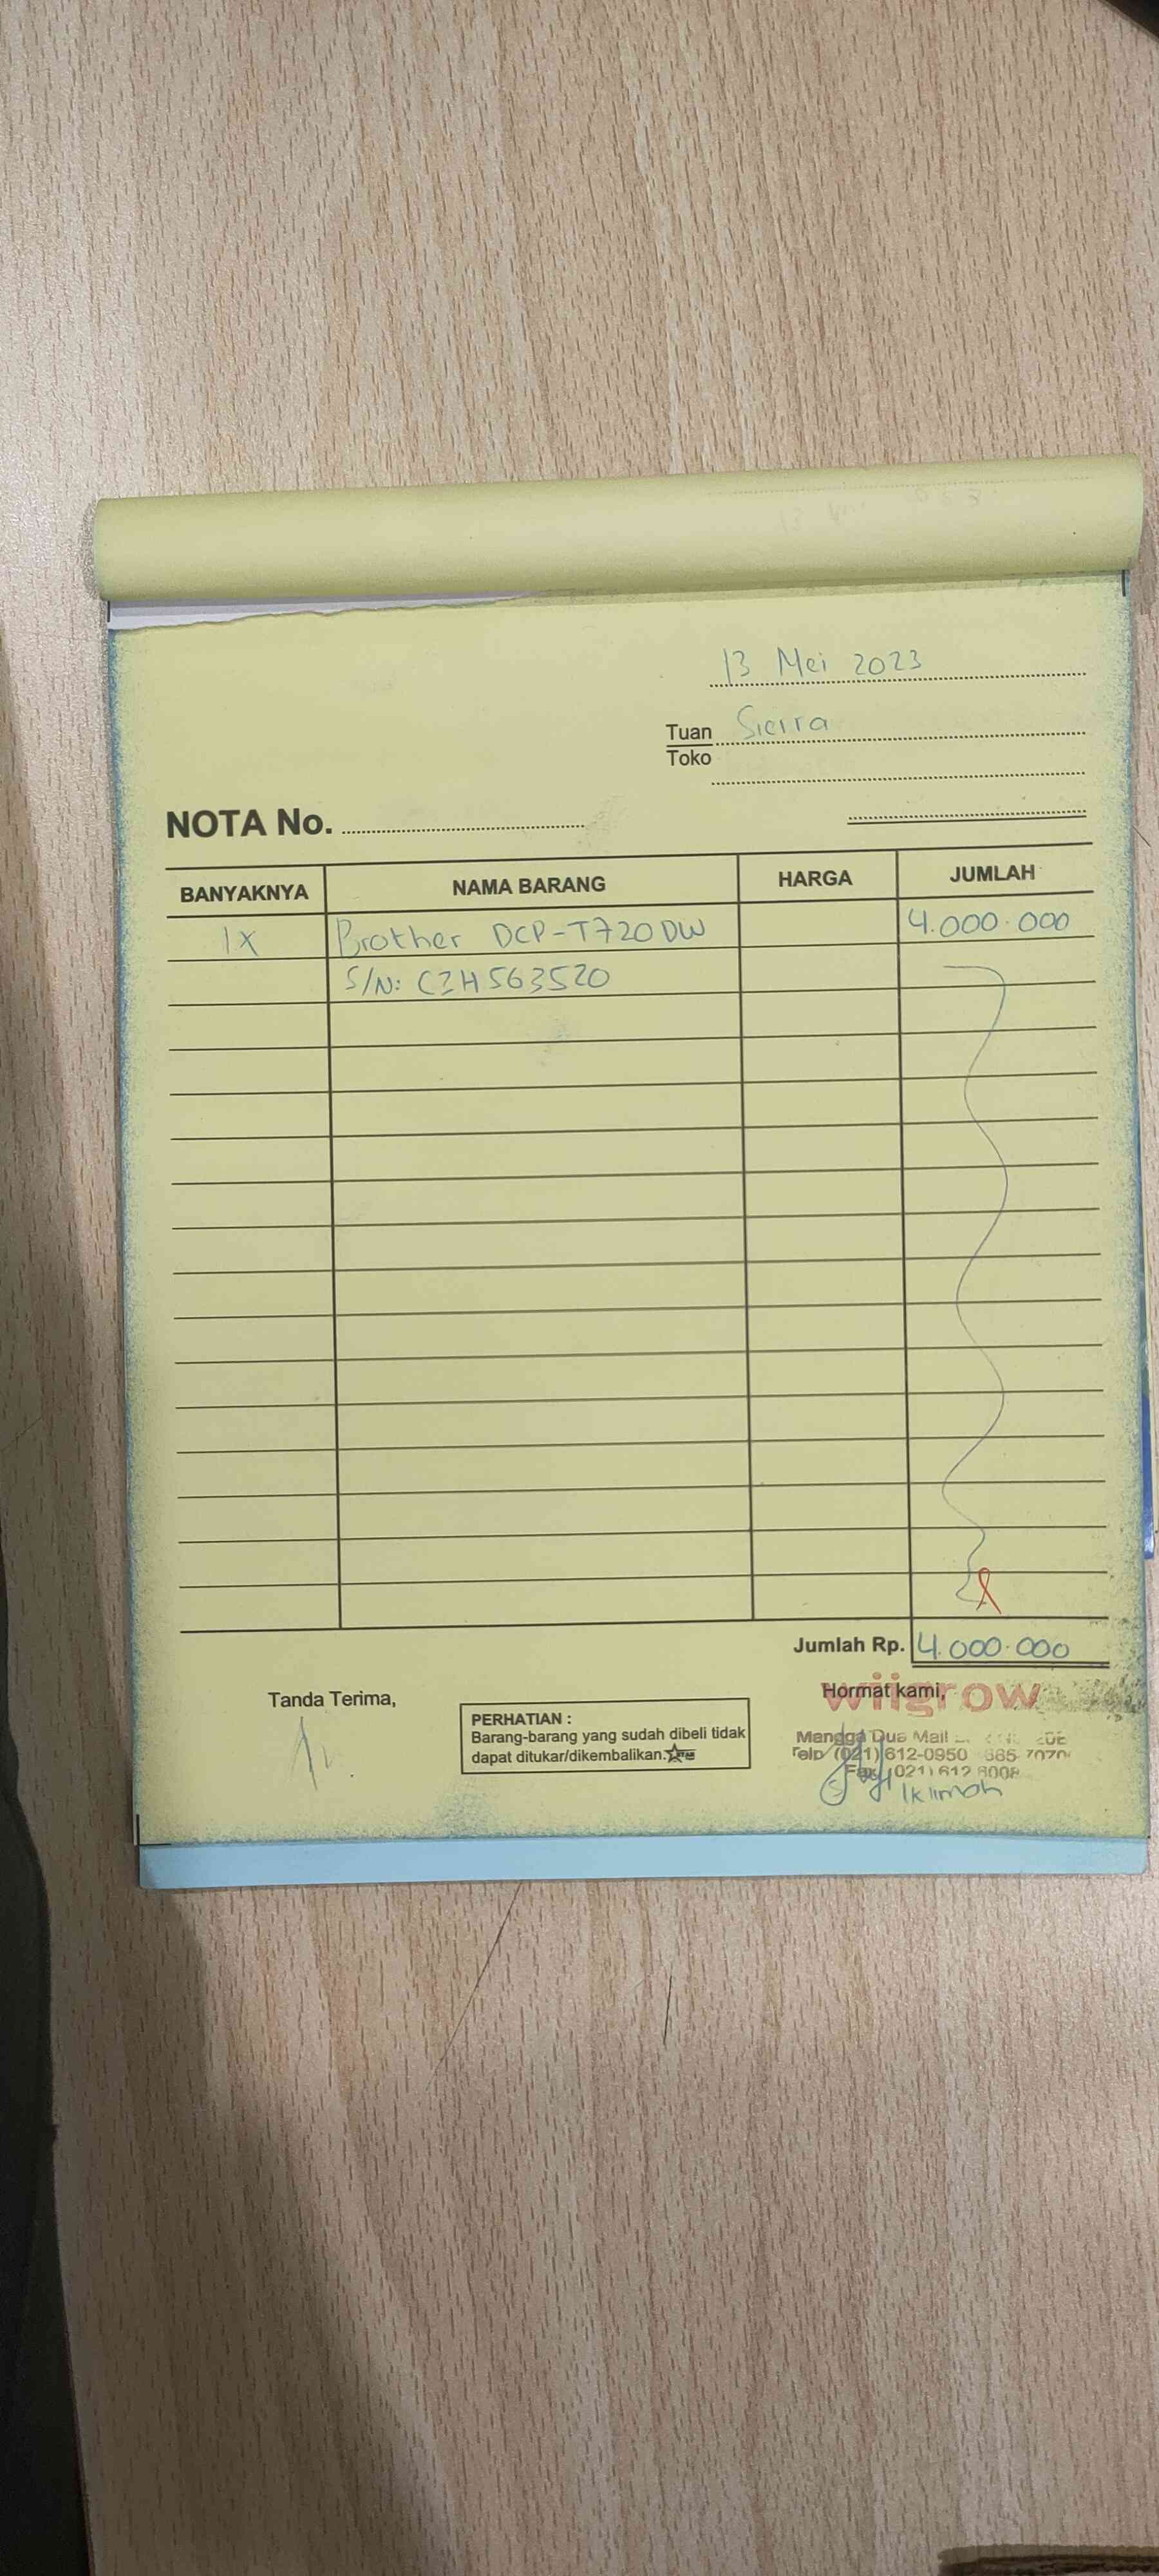 13 Mei 2023
Tuan Sierra
Toko
NOTA No.
BANYAKNYA NAMA BARANG HARGA JUMLAH
1X Brother DCP-T720DW 4.000.000
S/N: C3H563520
Jumlah Rp. 4.000.000
Tanda Terima,
Hormat kami,
wiigrow
PERHATIAN :
Barang-barang yang sudah dibeli tidak
dapat ditukar/dikembalikan.
Mangga Dua Mall
Telp (021) 612-0950
Fax (021) 612 6008
Iklimah